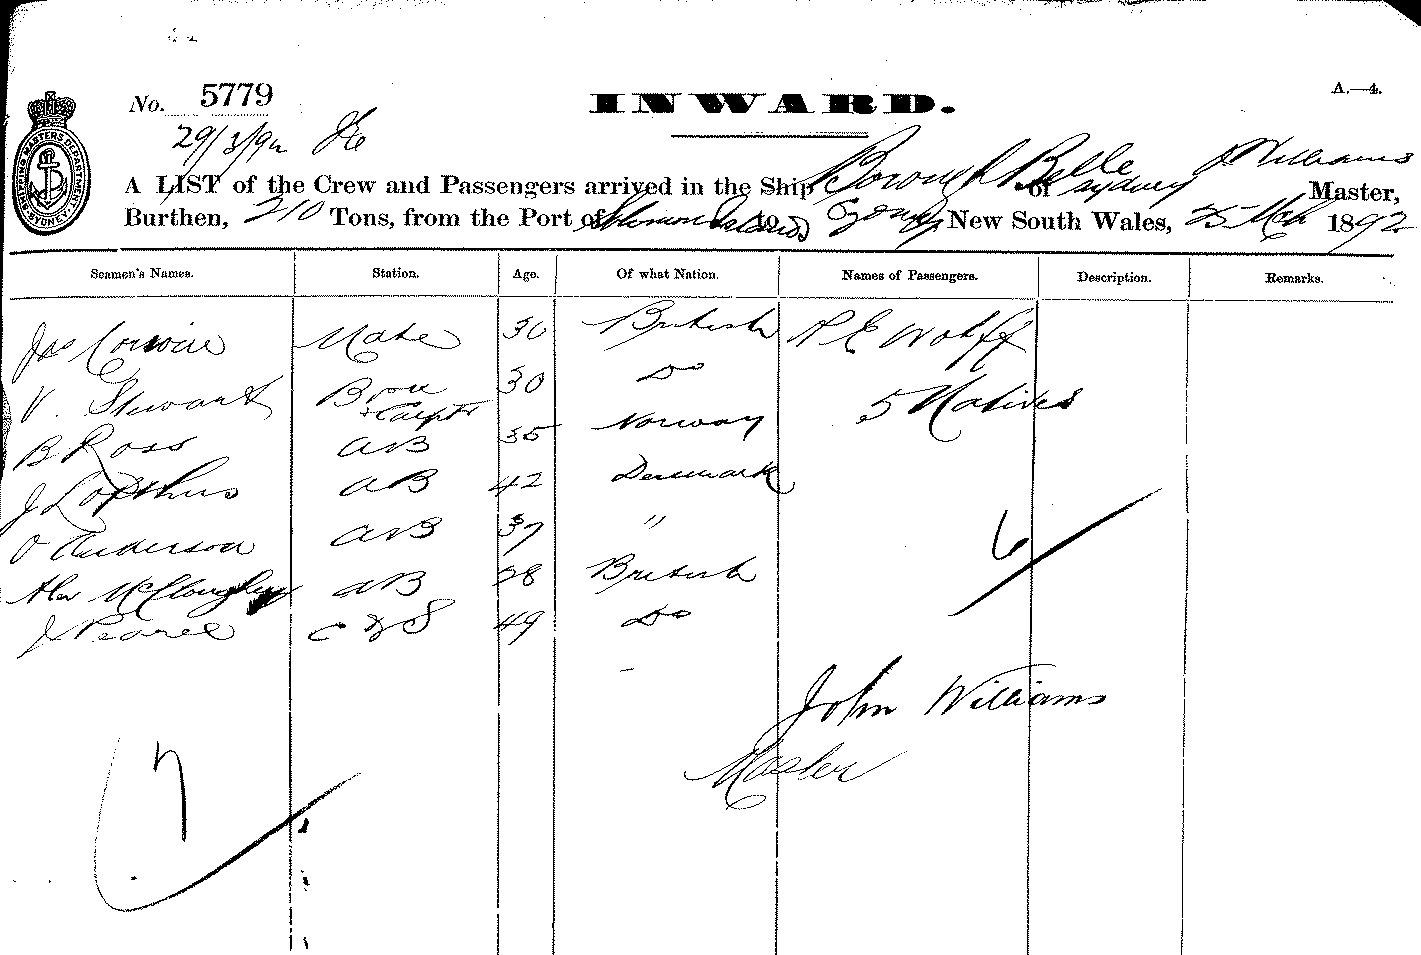 No. 5779
INWARD.
A.—4.
29/3/92
A LIST of the Crew and Passengers arrived in the Ship Borough Belle of Sydney J Williams Master,
Burthen, 210 Tons, from the Port of Solomon Islands to Sydney New South Wales, 25 Mch 1892
Seamen's Names. Station. Age. Of what Nation. Names of Passengers. Description. Remarks.
Jas Mate 30 British A E Wolff
V. Stewart Bosn + Carptr 30 Do 5 Natives
B Ross AB 35 Norway
J Lopthus AB 42 Denmark
O Anderson AB 37 "
Alex McCloughlin AB 28 British
J Pearce C & S 49 Do
6
John Williams
Master
7
SHIPPING MASTERS DEPARTMENT